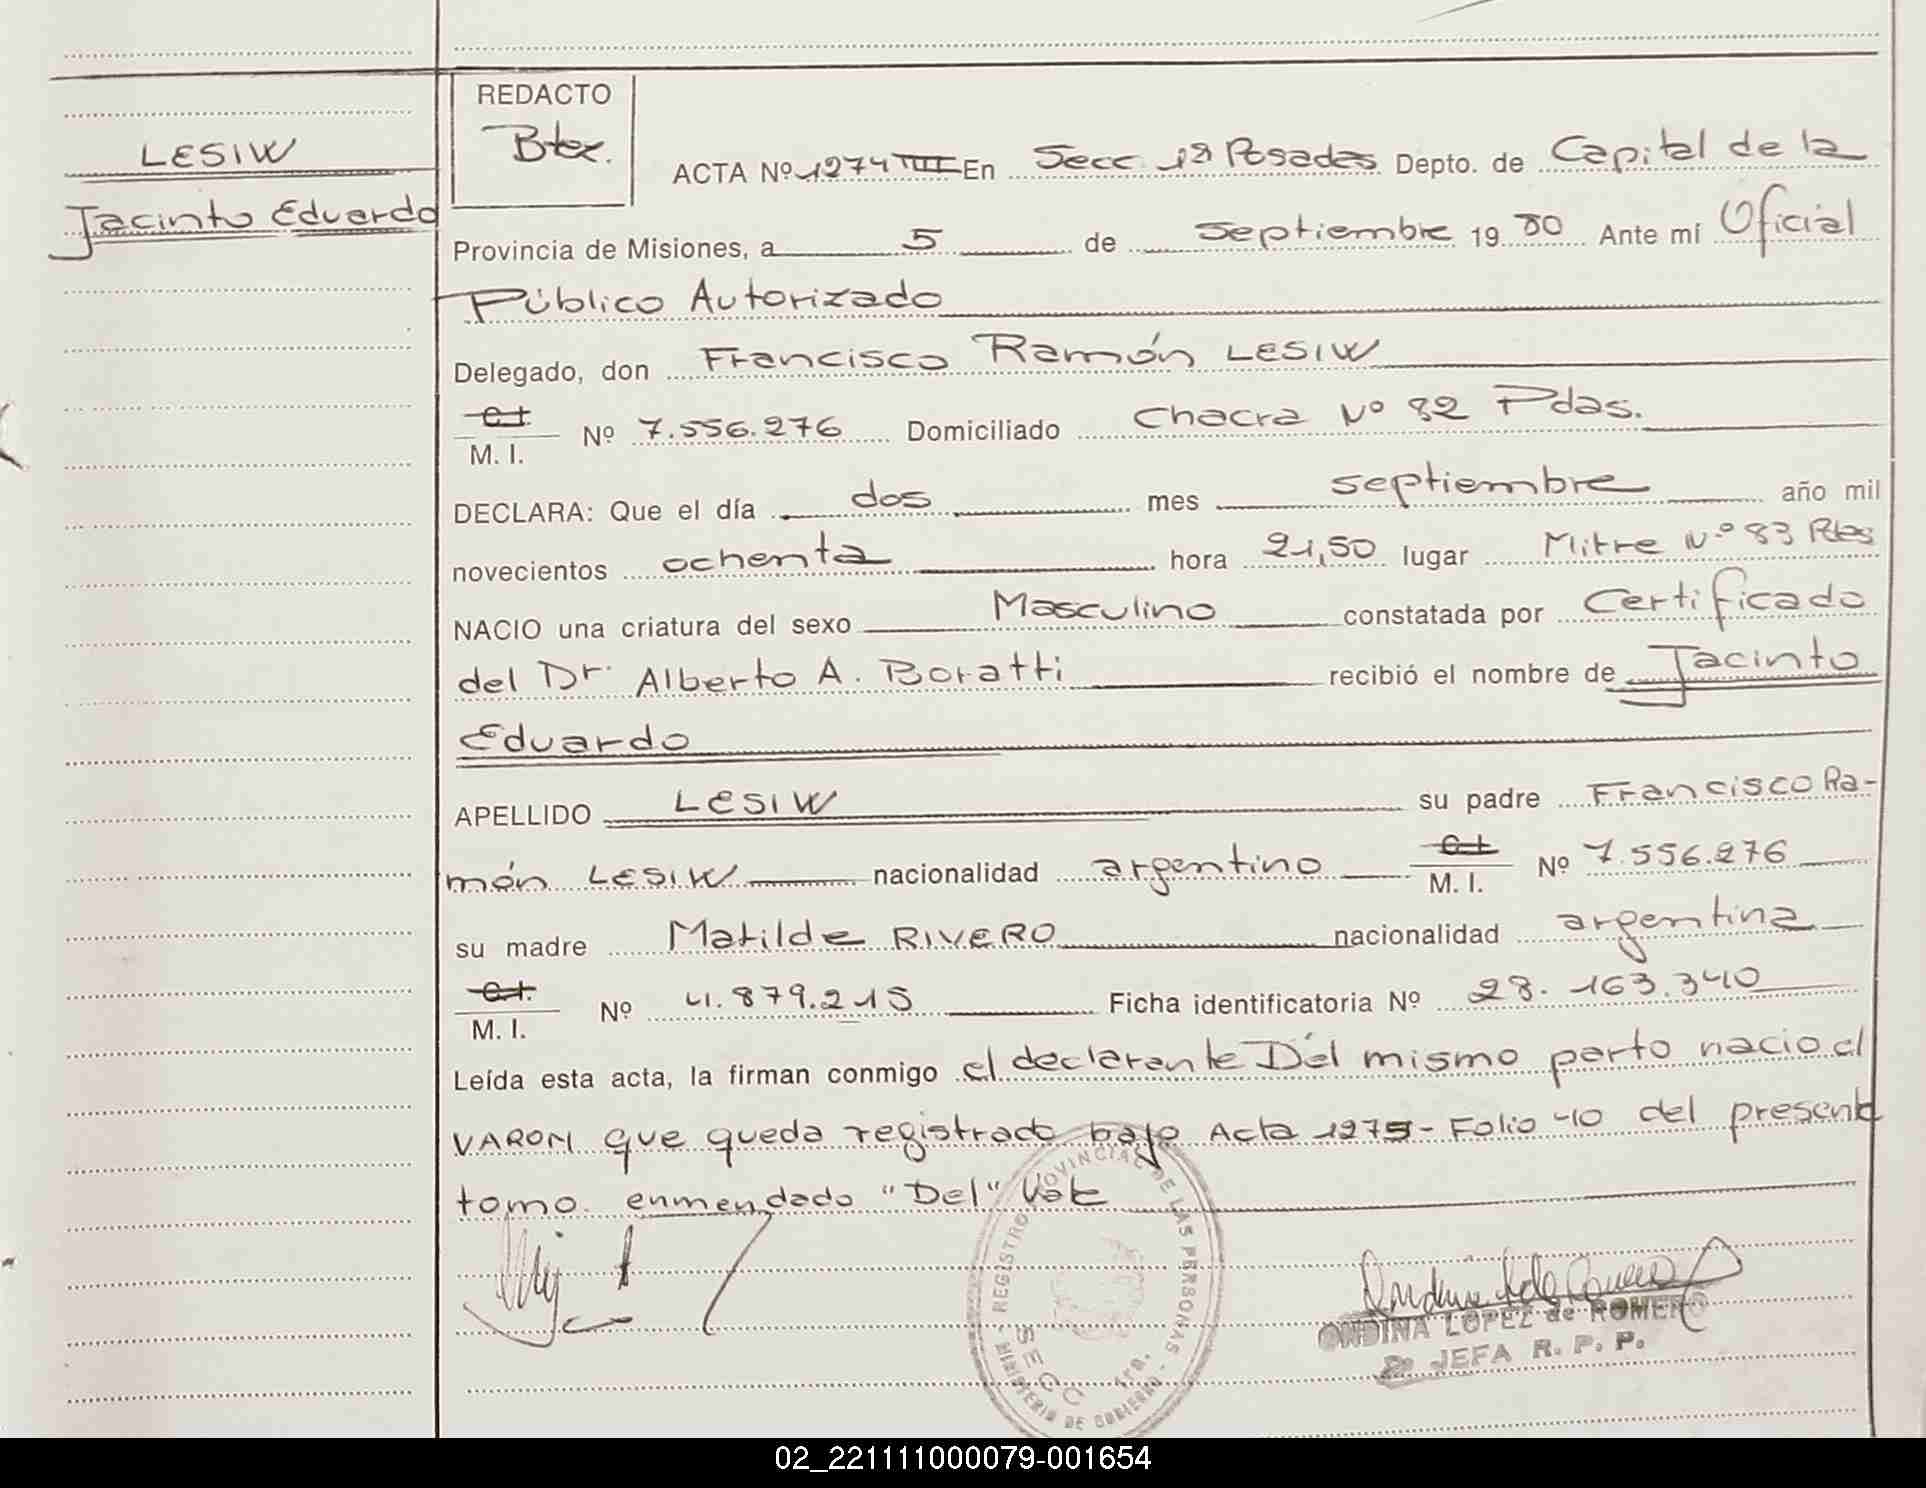 LESIW
Jacinto Eduardo
REDACTO
ACTA Nº 1274 IIII En Secc 1ª Posadas Depto. de Capital de la
Provincia de Misiones, a 5 de Septiembre 19 80 Ante mí Oficial
Público Autorizado
Delegado, don Francisco Ramón LESIW
C.I.
M. I. Nº 7.556.276 Domiciliado Chacra Nº 82 Pdas.
DECLARA: Que el día dos mes septiembre año mil
novecientos ochenta hora 21,50 lugar Mitre Nº 83 Pdas
NACIO una criatura del sexo Masculino constatada por Certificado
del Dr. Alberto A. Boratti recibió el nombre de Jacinto
Eduardo
APELLIDO LESIW su padre Francisco Ra-
món LESIW nacionalidad argentino C.I. M. I. Nº 7.556.276
su madre Matilde RIVERO nacionalidad argentina
C.I.
M. I. Nº 4.879.215 Ficha identificatoria Nº 28.163.340
Leída esta acta, la firman conmigo el declarante Del mismo parto nacio el
VARON que queda registrado bajo Acta 1275 - Folio 40 del presente
tomo. enmendado "Del" Vale
REGISTRO PROVINCIAL DE LAS PERSONAS - MINISTERIO DE GOBIERNO -
SECC 1ra.
ONDINA LOPEZ de ROMERO
JEFA R. P. P.
02_221111000079-001654